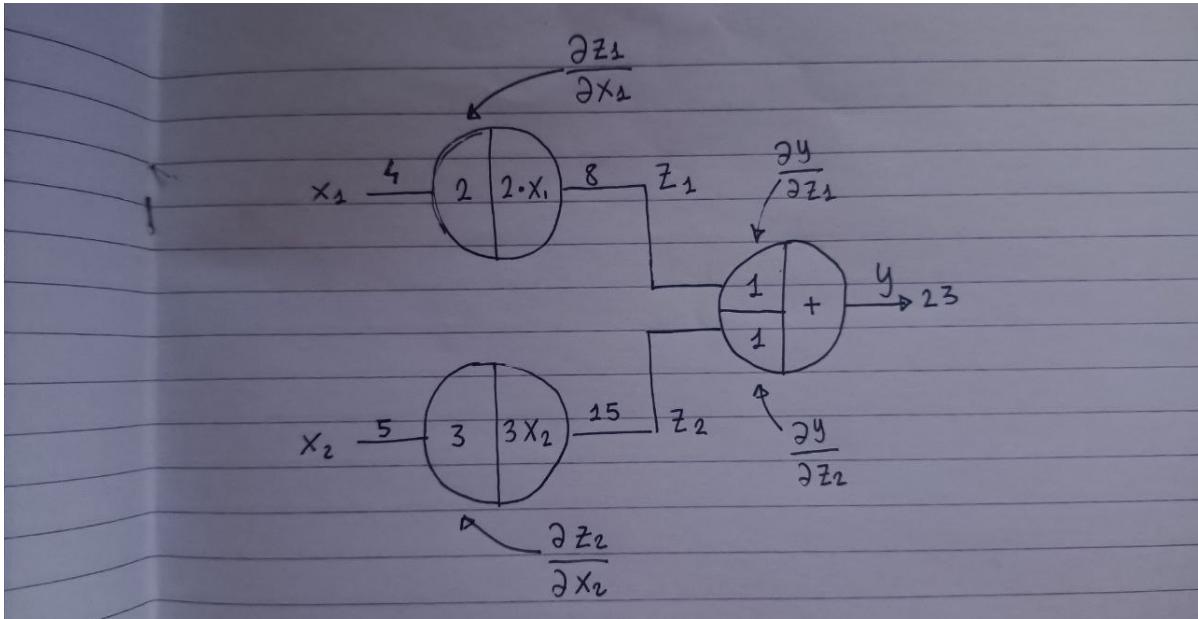 ∂z1/∂x1
x1 4 2 2·x1 8 z1
∂y/∂z1
1 + y 23
1
x2 5 3 3x2 15 z2
∂y/∂z2
∂z2/∂x2